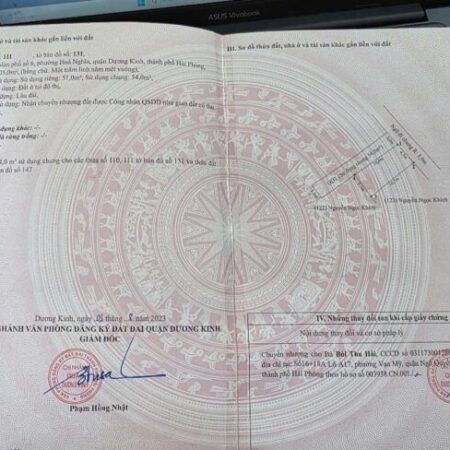 ASUS Vivobook
ở và tài sản khác gắn liền với đất
111 , tờ bản đồ số: 131,
dân phố số 6, phường Hoà Nghĩa, quận Dương Kinh, thành phố Hải Phòng,
105,0m², (bằng chữ: Một trăm linh năm mét vuông),
dụng: Sử dụng riêng: 51,0m²; Sử dụng chung: 54,0m²,
dụng: Đất ở tại đô thị,
dụng: Lâu dài,
dụng: Nhận chuyển nhượng đất được Công nhận QSDĐ như giao đất có thu
dụng khác: -/-
là rừng trồng: -/-
m² sử dụng chung cho các thửa số 110, 111 tờ bản đồ số 131 và thửa đất
đồ số 147
Dương Kinh, ngày 03 tháng 8 năm 2023
NHÁNH VĂN PHÒNG ĐĂNG KÝ ĐẤT ĐAI QUẬN DƯƠNG KINH
GIÁM ĐỐC
CHI NHÁNH
Phạm Hồng Nhật
III. Sơ đồ thửa đất, nhà ở và tài sản khác gắn liền với đất
(122) Nguyễn Ngọc Khích
(123) Nguyễn Ngọc Khích
IV. Những thay đổi sau khi cấp giấy chứng
Nội dung thay đổi và cơ sở pháp lý
Chuyển nhượng cho Bà Bùi Thu Hải, CCCD số
địa chỉ tại: Số16+18A Lô A17, phường Vạn Mỹ, quận Ngô Quyền
thành phố Hải Phòng theo hồ sơ số 003938.CN.001./.